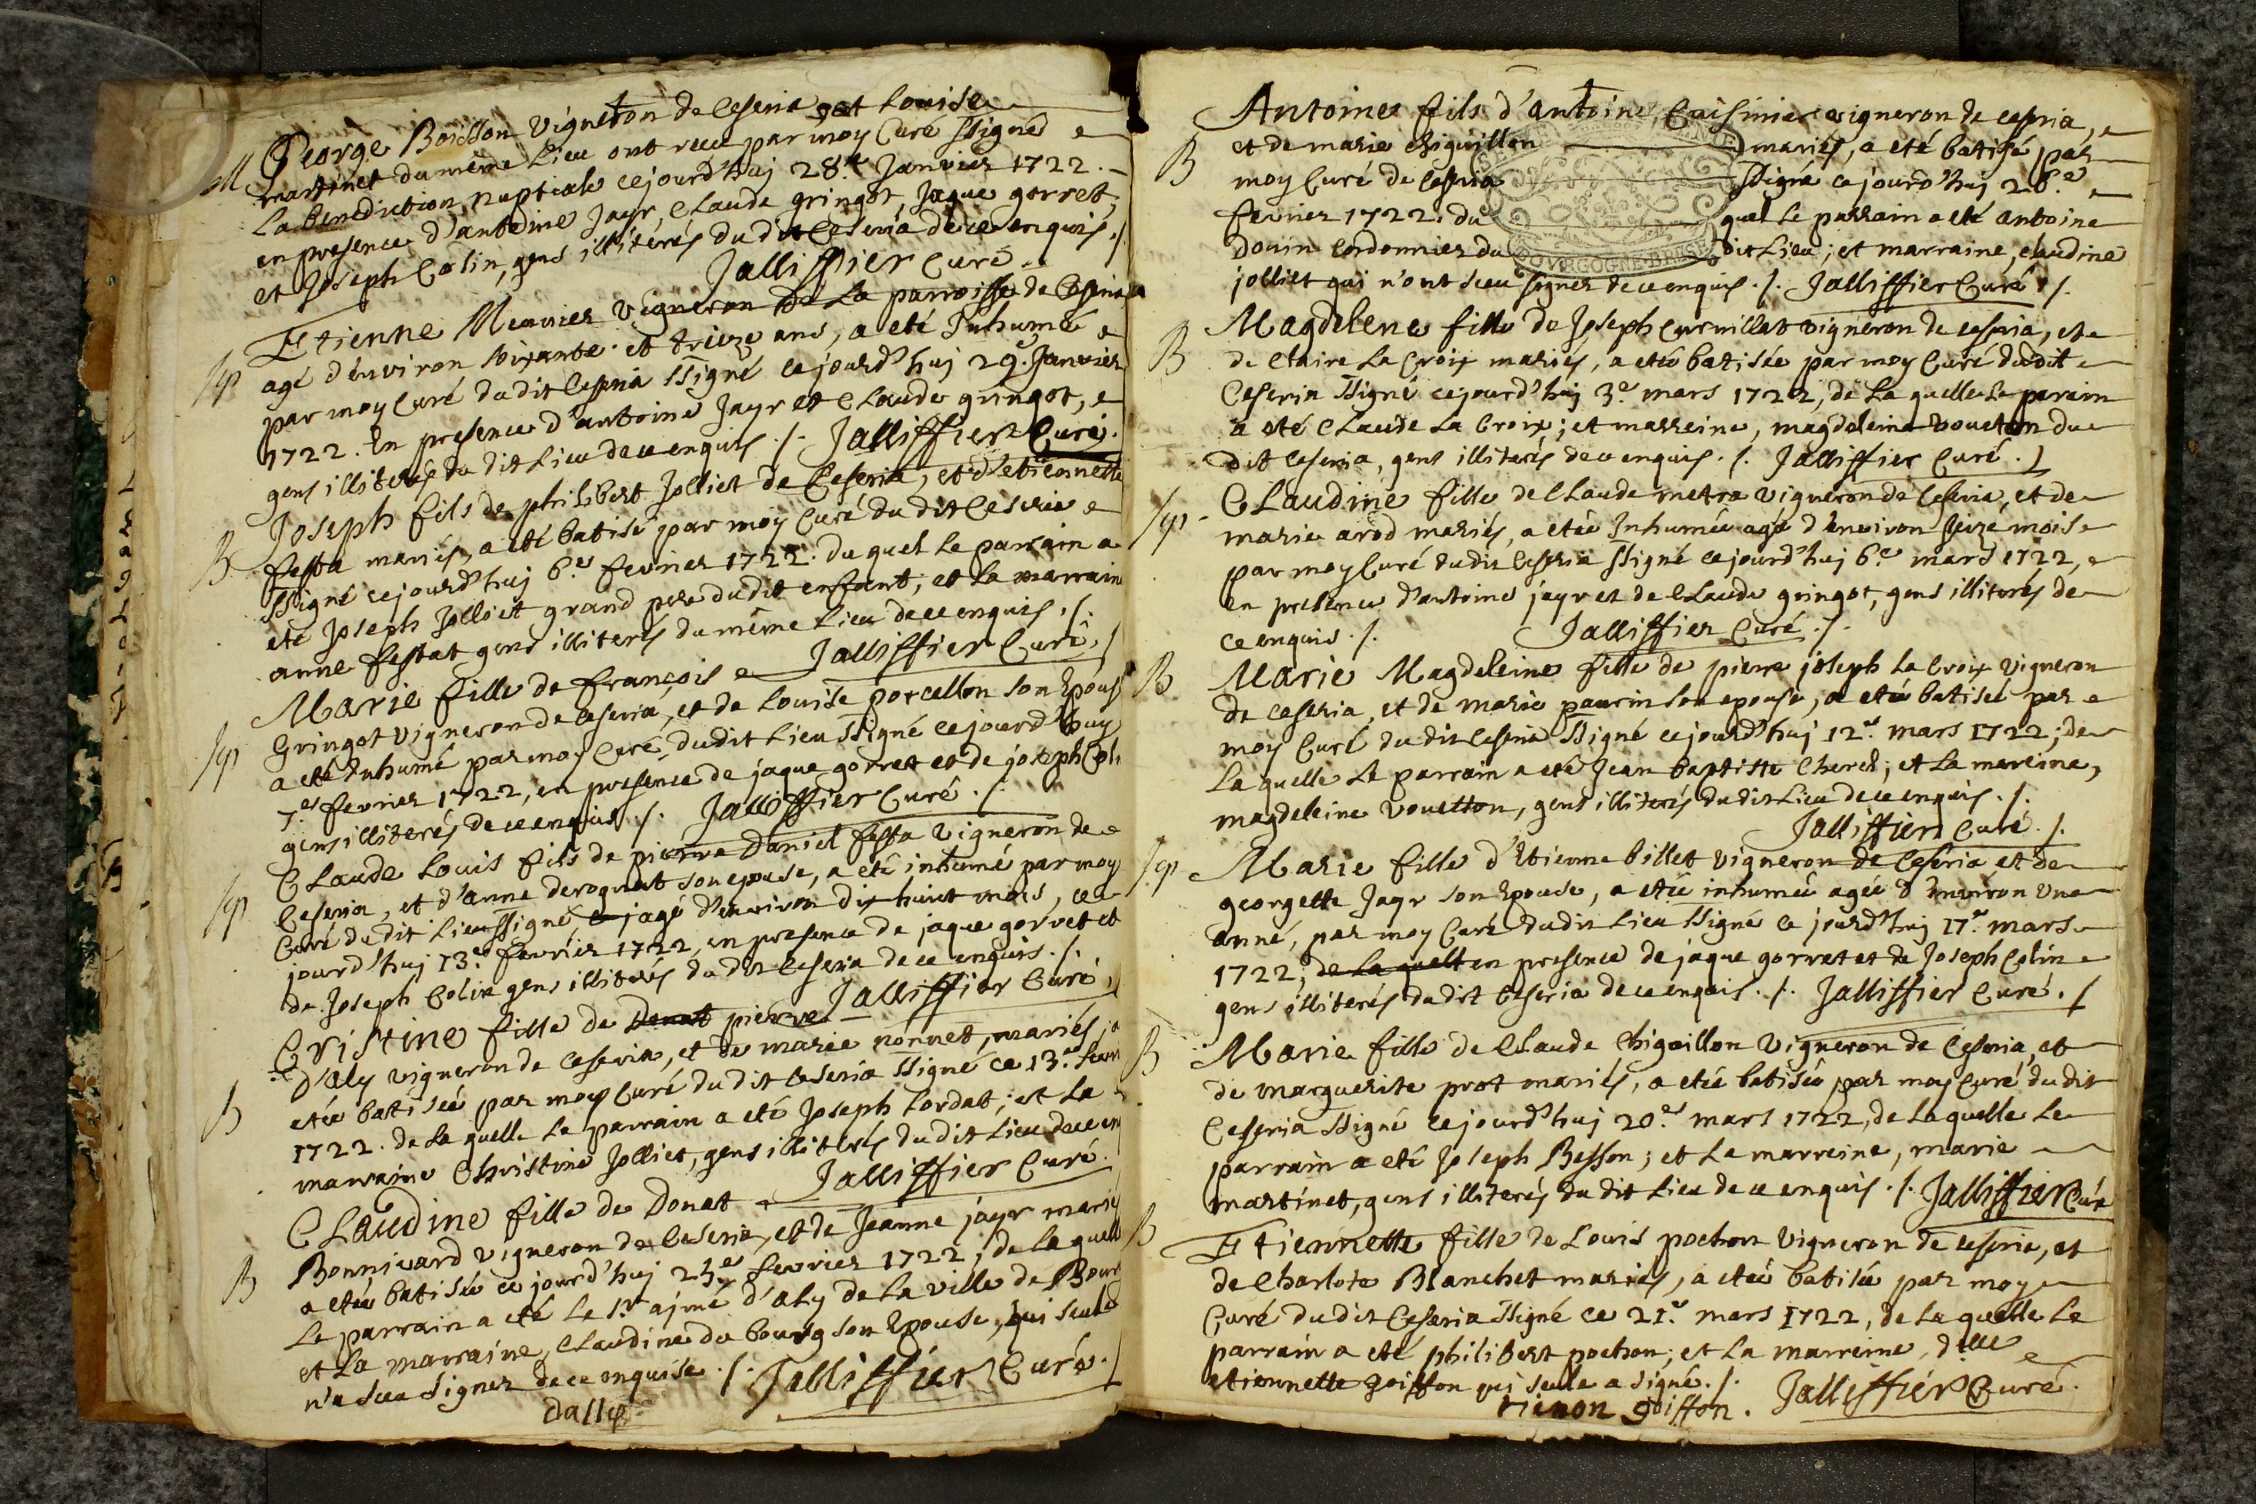 M George Boisson vigneron de Ceseria et Louise
martinet du même Lieu ont receu par moy Curé ssigné
La benediction nuptiale cejourd'huj 28.e Janvier 1722.
en presence d'antoine Jayr, Claude gringot, Jaque gorret,
et Joseph Colin, gens illitérés du dit Ceseria de ce enquis ./.
Jalliffier Curé
Etienne Meunier vigneron de La parroisse de Ceseria
Sep agé d'environ soixante et treize ans, a eté Inhumé
par moy Curé du dit Ceseria ssigné cejourd'huj 29.e Janvier
1722. En presence d'antoine Jayr et Claude gringot,
gens illiterés du dit Lieu de ce enquis ./. Jalliffier Curé.
Joseph fils de philibert Jolliet de Ceseria, et d'etiennette
B festa mariés, a eté batisé par moy Curé du dit Ceseria
ssigné cejourd'huj 6.e fevrier 1722. du quel Le parrain a
eté Joseph Jolliet grand pere du dit enfant; et La marraine
anne festat gens illiterés du même Lieu de ce enquis ./.
Marie fille de François Jalliffier Curé ./
Sep Gringot vigneron de Ceseria, et de Louise porcellon son Epouse
a eté Inhumé par moy Curé dudit Lieu ssigné cejourd'huy
7.e fevrier 1722, en presence de jaque gorret et de joseph Coli
gens illiterés de ce enquis ./. Jalliffier Curé ./.
Claude Louis fils de pierre Daniel festa vigneron de
Sep Ceseria, et d'anne deroquat son epouse, a eté inhumé par moy
Curé du dit Lieu ssigné, agé d'environ dix huict mois, ce
jourd'huj 13.e fevrier 1722, en presence de jaque gorret et
de Joseph Colin gens illiterés du dit Ceseria de ce enquis ./.
Cristine fille de Donat pierre Jalliffier Curé
d'aly vigneron de Ceseria, et de marie nonnet, mariés, a
B etée batisée par moy Curé du dit Ceseria ssigné ce 13.e fevr
1722. de La quelle Le parrain a eté Joseph Lordat; et La
marraine Christine Jolliet, gens illiterés du dit Lieu de ce en
Claudine fille de Donat Jalliffier Curé.
B Bonnivard vigneron de Ceseria, et de Jeanne jayr mariés
a etée batisée ce jourd'huj 23.e fevrier 1722; de La quelle
Le parrain a eté Le Sr. ajmé d'aly de La ville de Bourg
et La marraine, Claudine du bourg son Epouse, qui seule
n'a sceu signer de ce enquise ./. Jalliffier Curé ./
dally
Antoine fils d'antoine Cuisinier vigneron de Ceseria,
B et de marie Chiguillon mariés, a eté batisé par
moy Curé de Ceseria ssigné cejourd'huj 26.e
fevrier 1722. du quel Le parrain a eté antoine
Douin Cordonnier du dit Lieu; et marraine, claudine
jolliet qui n'ont sceu signer de ce enquis ./. Jalliffier Curé ./.
Magdelene fille de Joseph Curnillat vigneron de Ceseria, et
B de Claire La Croix mariés, a etée batisée par moy Curé du dit
Ceseria ssigné cejourd'huj 3.e mars 1722, de La quelle Le parrin
a eté Claude La Croix; et marreine, magdeleine vouetton du
dit Ceseria, gens illiterés de ce enquis ./. Jalliffier Curé ./
Claudine fille de Claude metra vigneron de Ceseria, et de
Sep marie arod mariés, a etée Inhumée agée d'environ seize mois
par moy Curé dudit Ceseria ssigné cejourd'huj 6.e mars 1722,
en presence d'antoine jayr et de Claude gringot, gens illiterés de
ce enquis ./. Jalliffier Curé ./.
B Marie Magdeleine fille de pierre joseph La Croix vigneron
de Ceseria, et de marie paurin son epouse, a etée batisée par
moy Curé du dit Ceseria ssigné cejourd'huj 12.e mars 1722; de
La quelle Le parrain a eté Jean baptiste Cherel; et La mareine,
magdeleine vouetton, gens illiterés du dit Lieu de ce enquis ./.
Jalliffier Curé ./.
Sep Marie fille d'Etienne billet vigneron de Ceseria et de
georgette Jayr son Epouse, a etée inhumée agée d'environ une
anné, par moy Curé dudit Lieu ssigné ce jourd'huj 17.e mars
1722; de La quelle en presence de jaque gorret et de Joseph Colin
gens illiterés du dit Ceseria de ce enquis ./. Jalliffier Curé ./
B Marie fille de Claude Chiguillon vigneron de Ceseria, et
de marguerite prost mariés, a etée batisée par moy Curé du dit
Ceseria ssigné cejourd'huj 20.e mars 1722, de La quelle Le
parrain a eté Joseph Besson; et La marreine, marie
martinet, gens illiterés du dit Lieu de ce enquis ./. Jalliffier Curé
B Etiennette fille de Louis pochon vigneron de Ceseria, et
de Charlote Blanchet mariés, a etée batisée par moy
Curé du dit Ceseria ssigné ce 21.e mars 1722, de La quelle Le
parrain a eté philibert pochon; et La marreine, dlle
etiennette goiffon qui seule a signé ./. Jalliffier Curé.
tienon goiffon.